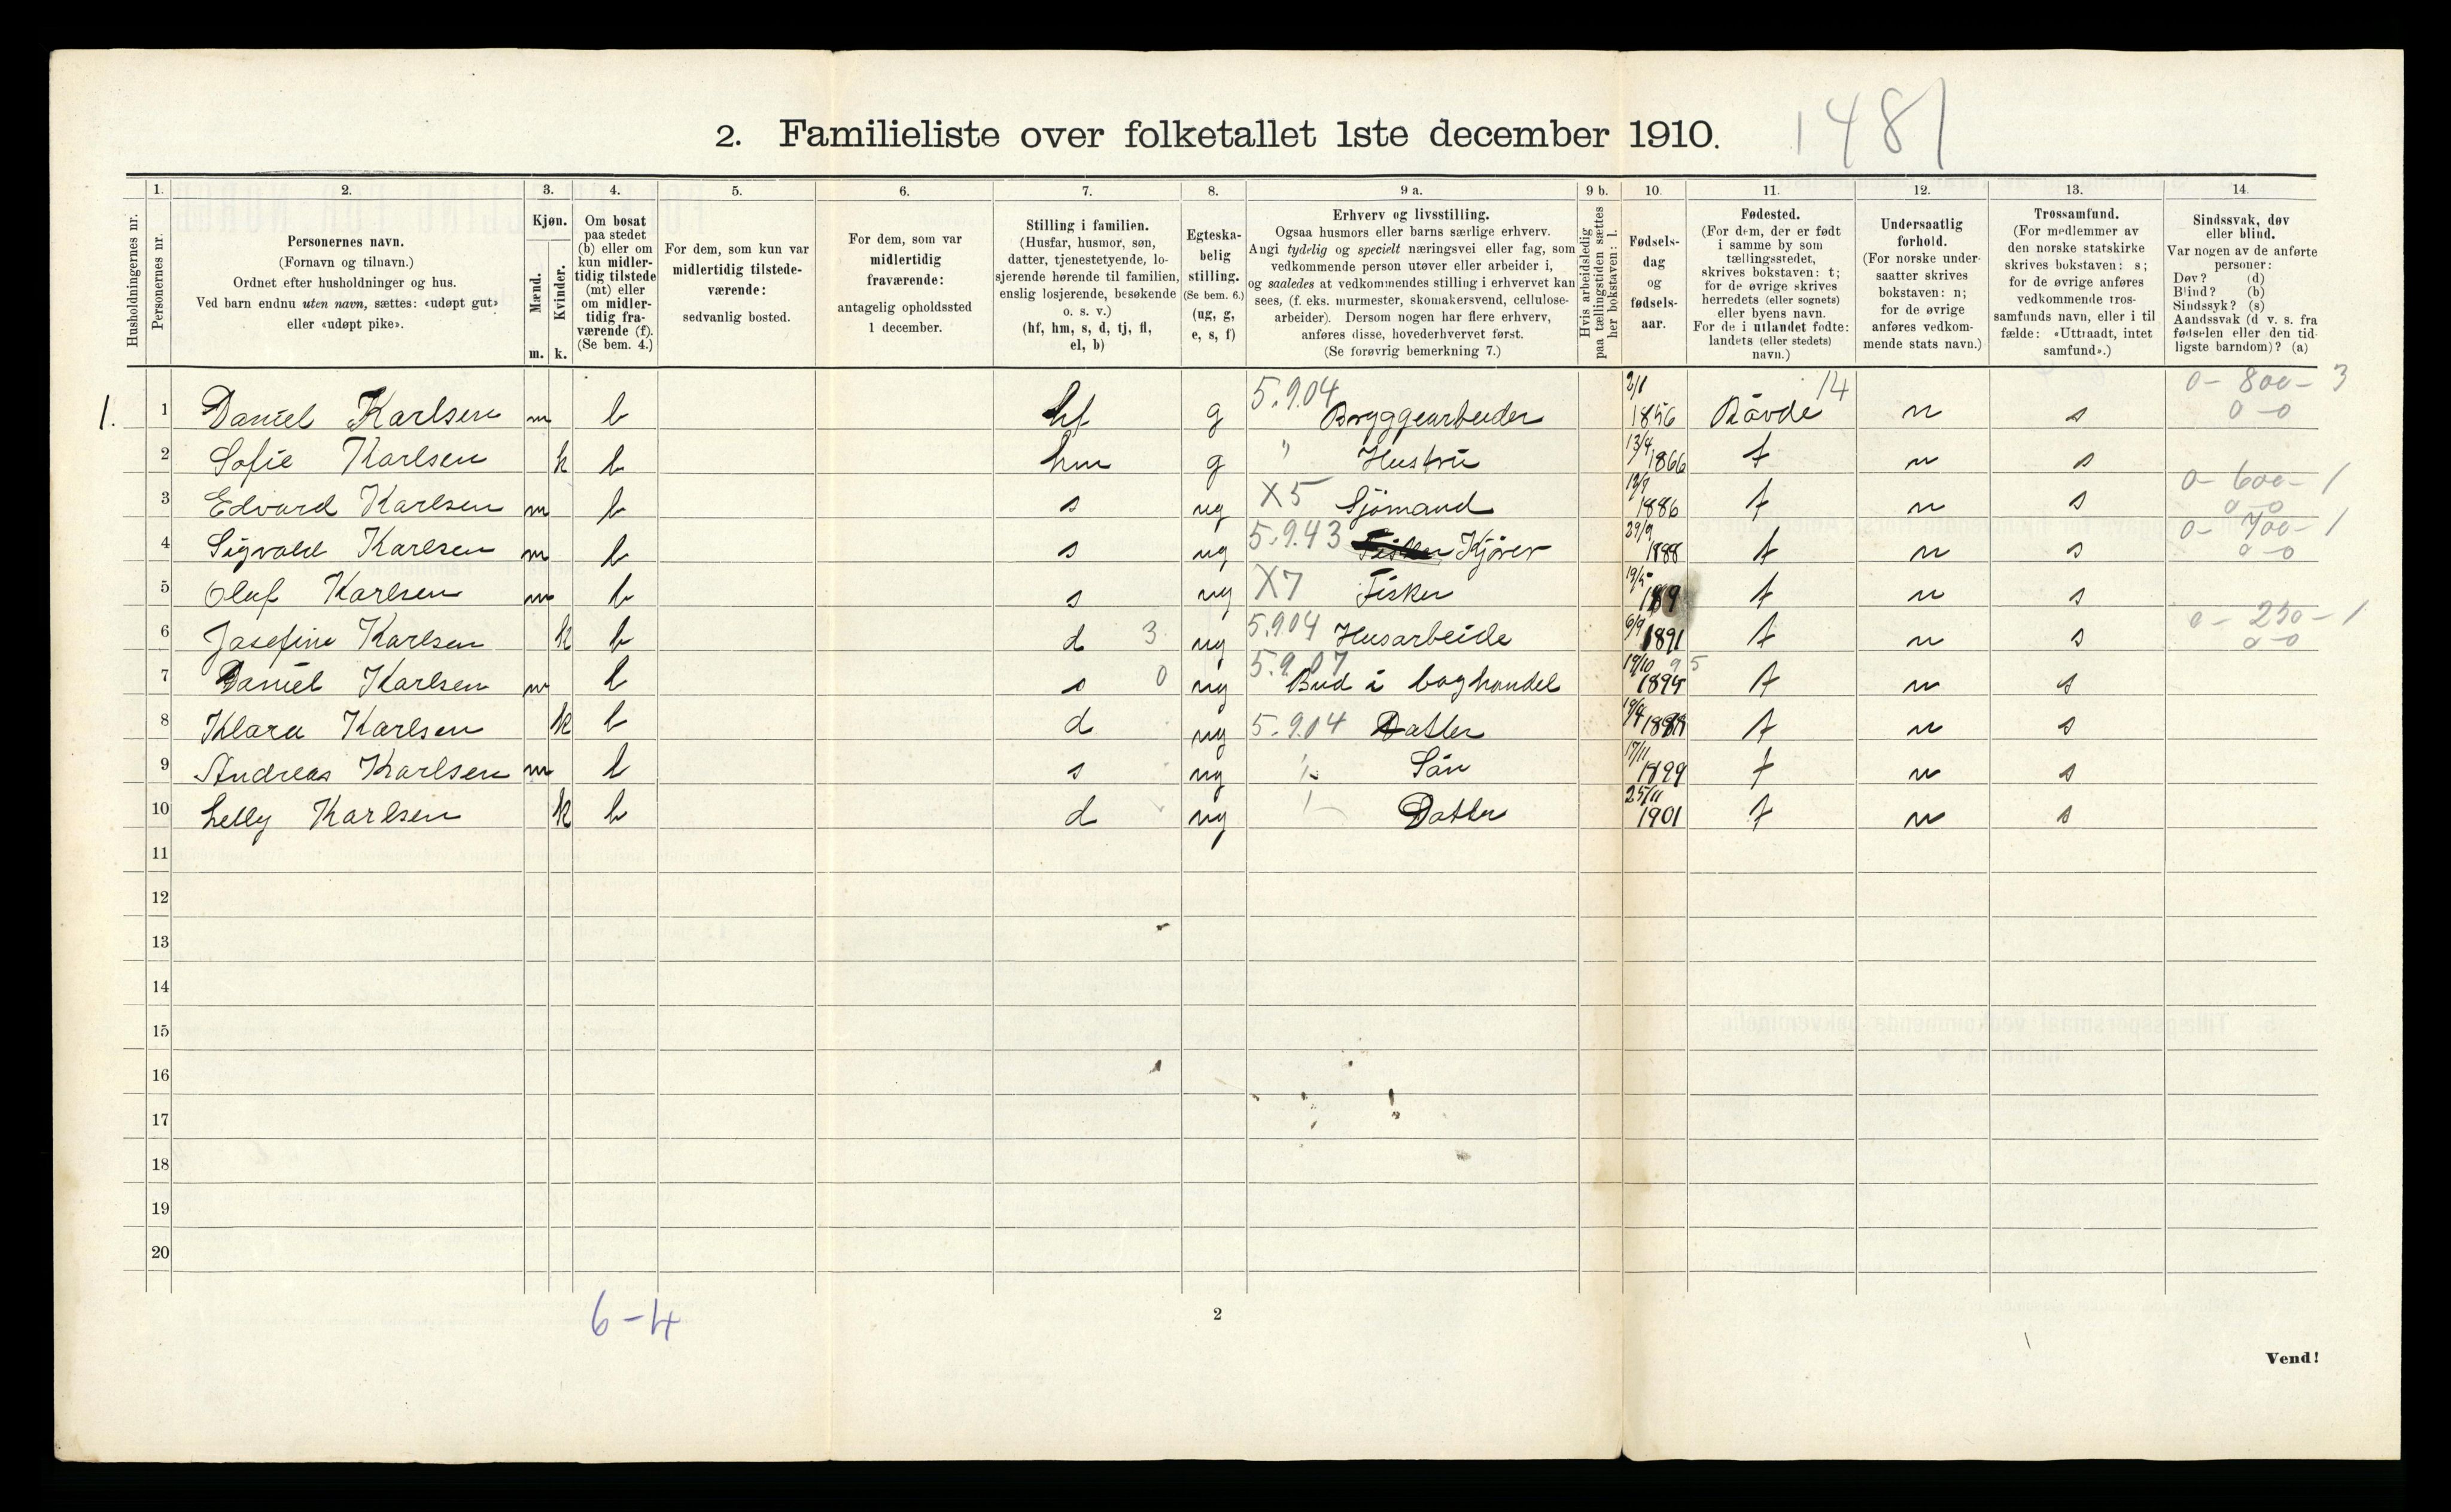 2. Familieliste over folketallet 1ste december 1910.
1481
1. 2. 3. 4. 5. 6. 7. 8. 9 a. 9 b. 10. 11. 12. 13. 14.
Husholdningernes nr.
Personernes nr.
Personernes navn.
(Fornavn og tilnavn.)
Ordnet efter husholdninger og hus.
Ved barn endnu uten navn, sættes: «udøpt gut»
eller «udøpt pike».
Kjøn.
Mænd.
Kvinder.
m. k.
Om bosat
paa stedet
(b) eller om
kun midler-
tidig tilstede
(mt) eller
om midler-
tidig fra-
værende (f).
(Se bem. 4.)
For dem, som kun var
midlertidig tilstede-
værende:
sedvanlig bosted.
For dem, som var
midlertidig
fraværende:
antagelig opholdssted
1 december.
Stilling i familien.
(Husfar, husmor, søn,
datter, tjenestetyende, lo-
sjerende hørende til familien,
enslig losjerende, besøkende
o. s. v.)
(hf, hm, s, d, tj, fl,
el, b)
Egteska-
belig
stilling.
(Se bem. 6.)
(ug, g,
e, s, f)
Erhverv og livsstilling.
Ogsaa husmors eller barns særlige erhverv.
Angi tydelig og specielt næringsvei eller fag, som
vedkommende person utøver eller arbeider i,
og saaledes at vedkommendes stilling i erhvervet kan
sees, (f. eks. murmester, skomakersvend, cellulose-
arbeider). Dersom nogen har flere erhverv,
anføres disse, hovederhvervet først.
(Se forøvrig bemerkning 7.)
Hvis arbeidsledig
paa tællingstiden sættes
her bokstaven: l.
Fødsels-
dag
og
fødsels-
aar.
Fødested.
(For dem, der er født
i samme by som
tællingsstedet,
skrives bokstaven: t;
for de øvrige skrives
herredets (eller sognets)
eller byens navn.
For de i utlandet fødte:
landets (eller stedets)
navn.)
Undersaatlig
forhold.
(For norske under-
saatter skrives
bokstaven: n;
for de øvrige
anføres vedkom-
mende stats navn.)
Trossamfund.
(For medlemmer av
den norske statskirke
skrives bokstaven: s;
for de øvrige anføres
vedkommende tros-
samfunds navn, eller i til
fælde: «Uttraadt, intet
samfund».)
Sindssvak, døv
eller blind.
Var nogen av de anførte
personer:
Døv? (d)
Blind? (b)
Sindssyk? (s)
Aandssvak (d v. s. fra
fødselen eller den tid-
ligste barndom)? (a)
1. 1 Daniel Karlsen m b hf g 5.9.04 Bryggearbeider 2/1 1856 Rövde 14 n s 0-800-3 0-0
2 Sofie Karlsen k b hm g " Hustru 13/4 1866 t n s
3 Edvard Karlsen m b s ug X5 Sjömand 1886 t n s 0-600-1 0-0
4 Sigvald Karlsen m b s ug 5.9.43 Fisker Kjörer 29/9 1888 t n s 0-700-1 0-0
5 Oluf Karlsen m b s ug X7 Fisker 19/5 t n s
6 Josefine Karlsen k b d 3 ug 5.9.04 Husarbeide 6/9 1891 t n s 0-250-1 0-0
7 Daniel Karlsen m b s 0 ug 5.9.07 Bud i boghandel 19/10 95 t n s
8 Klara Karlsen k b d ug 5.9.04 Datter t n s
9 Andreas Karlsen m b s ug Sön 17/11 1899 t n s
10 Lelly Karlsen k b d ug Datter 25/11 1901 t n s
11
12
13
14
15
16
17
18
19
20
6-4
2
Vend!